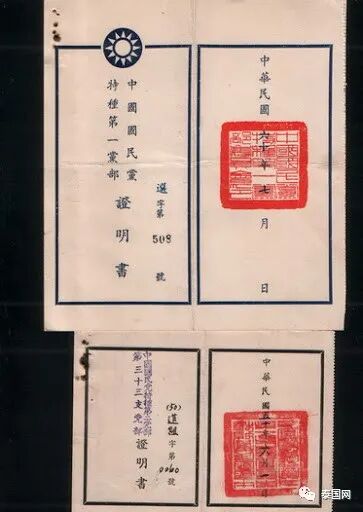 中華民國六十年七月日
中國國民黨
特種第一黨部
證明書
選字第508號
中華民國五十年六月一日
中國國民黨特種第黨部
第三十三支黨部
證明書
(50)字第0060號
泰国网